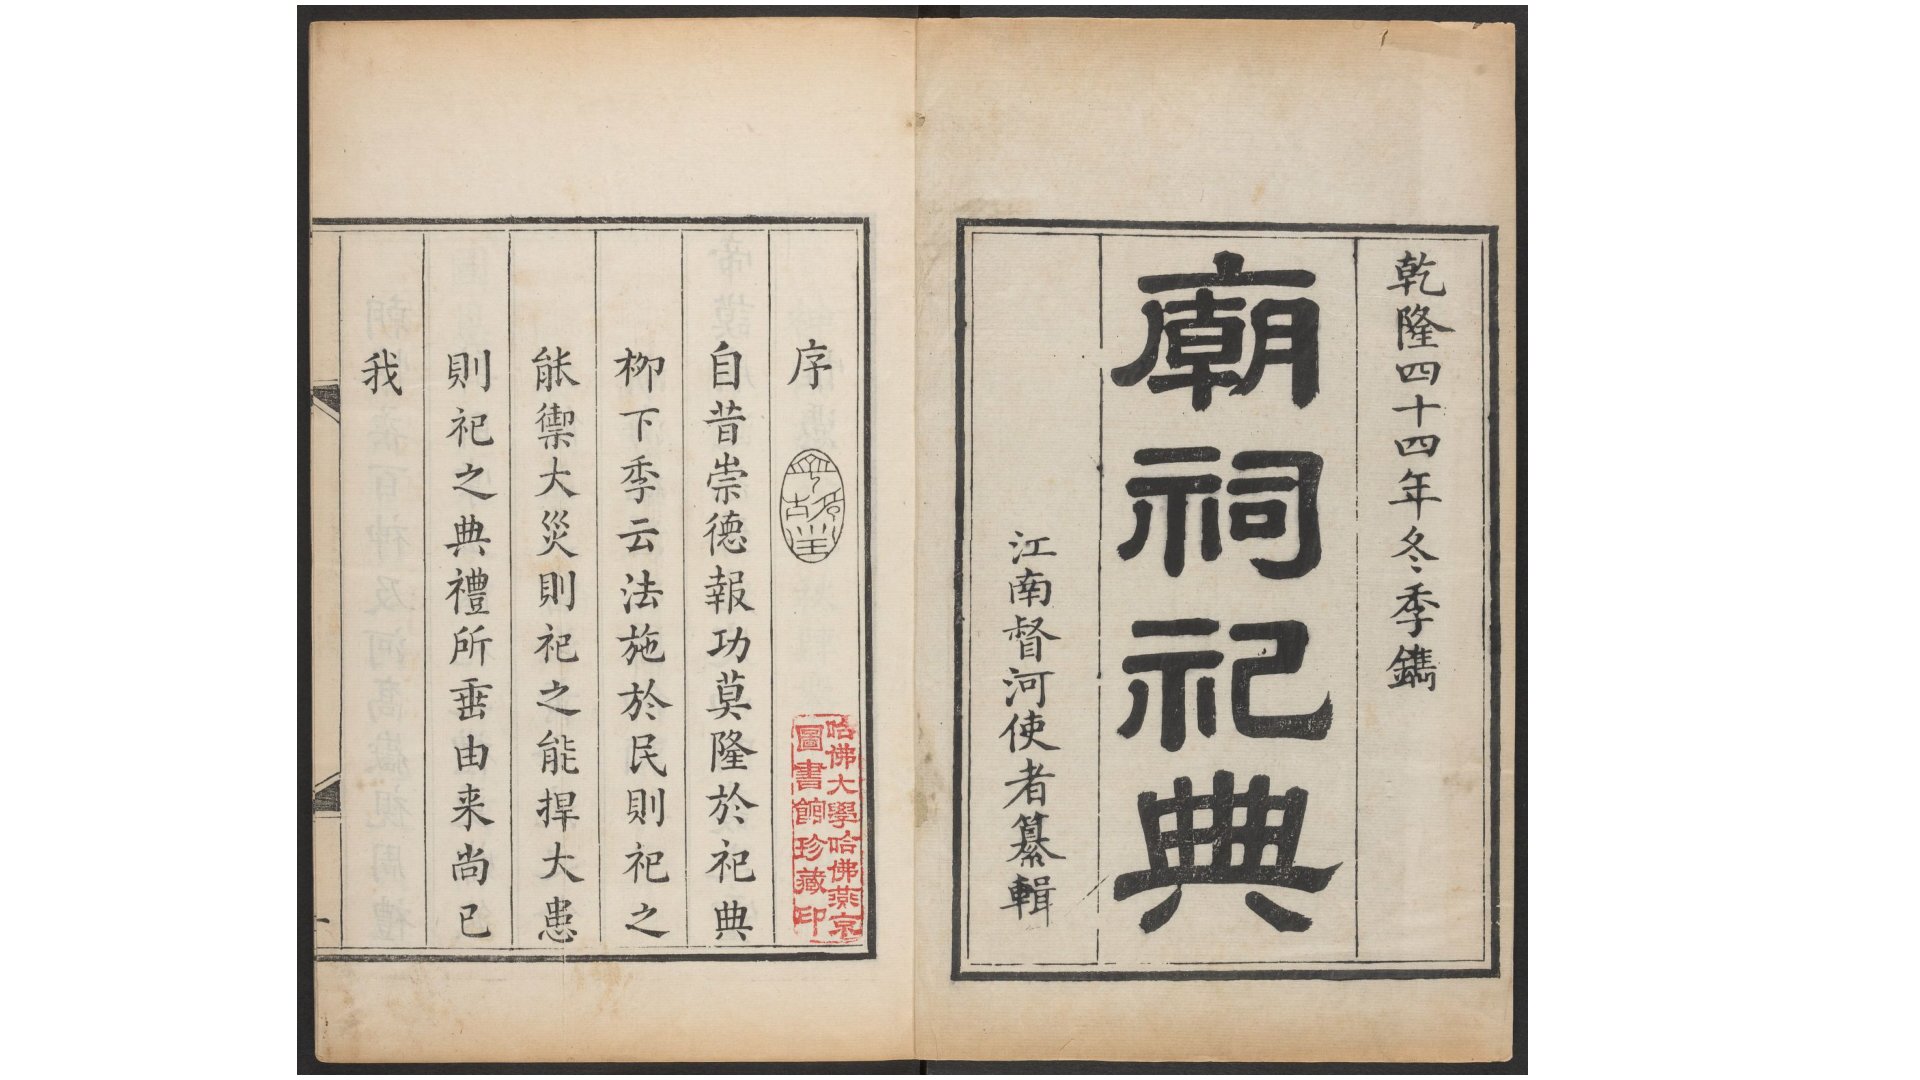 乾隆四十四年冬季鐫
廟祠祀典
江南督河使者纂輯
序
哈佛大學哈佛燕京
圖書館珍藏印
自昔崇德報功莫隆於祀典
柳下季云法施於民則祀之
能禦大災則祀之能捍大患
則祀之典禮所垂由来尚已
我
一